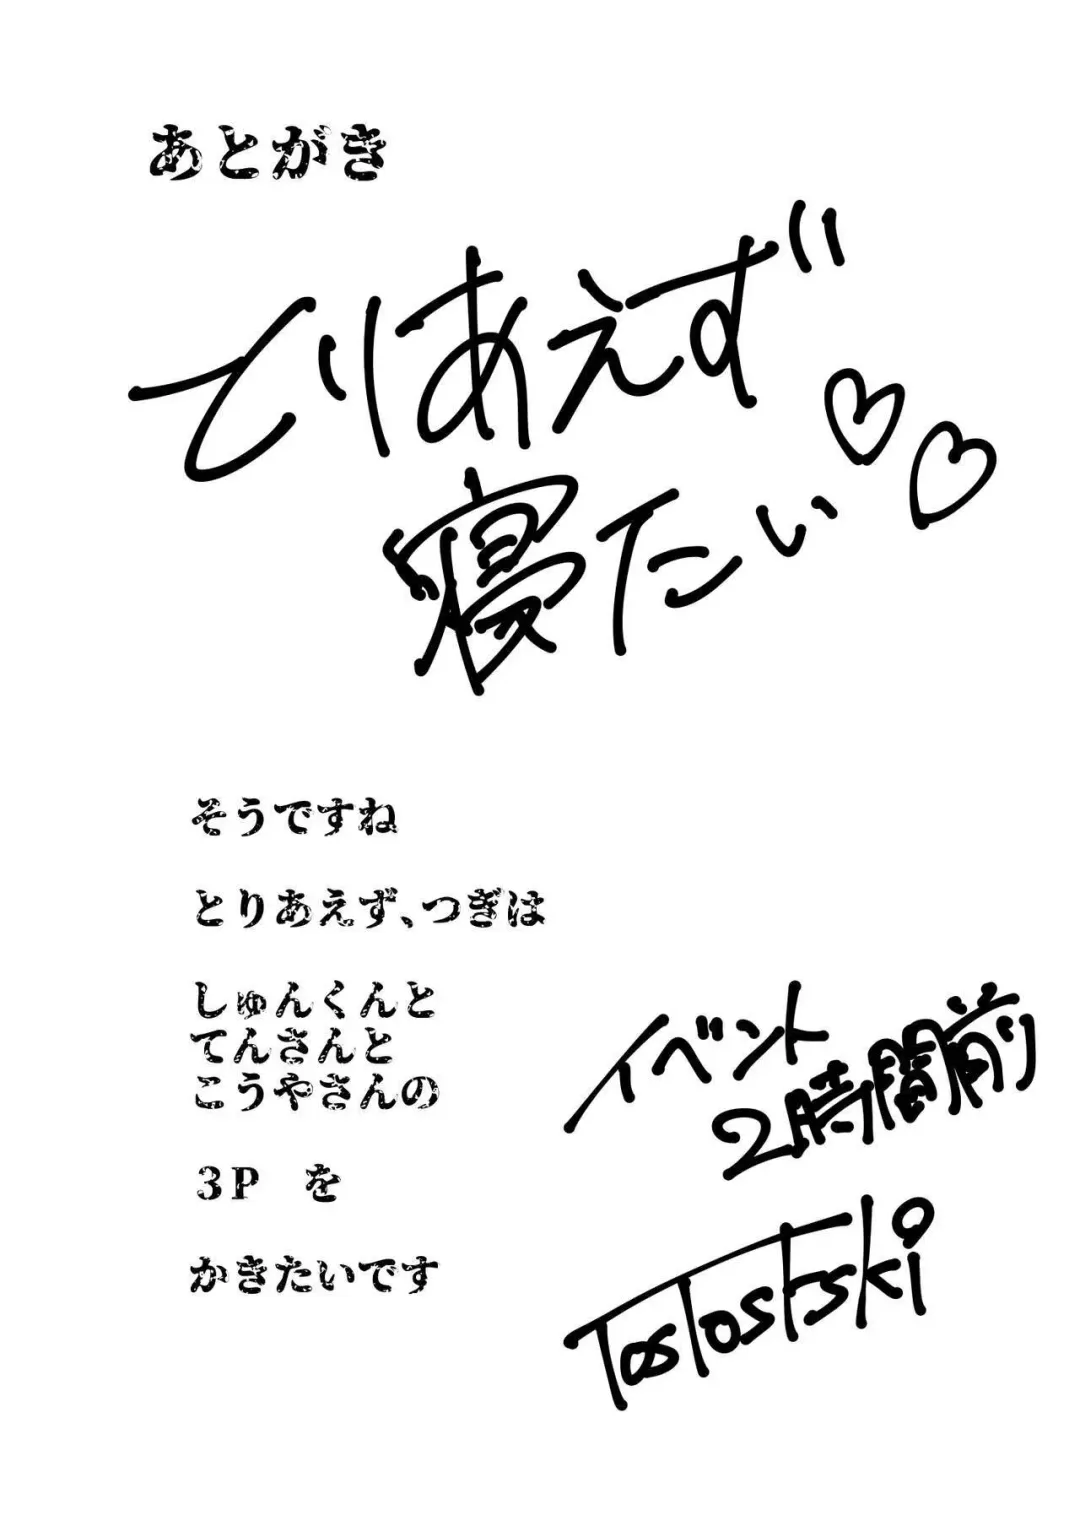 あとがき
とりあえず
寝たい♡♡
そうですね
とりあえず、つぎは
しゅんくんと
てんさんと
こうやさんの
3P を
かきたいです
イベント
2時間前
Tostostski